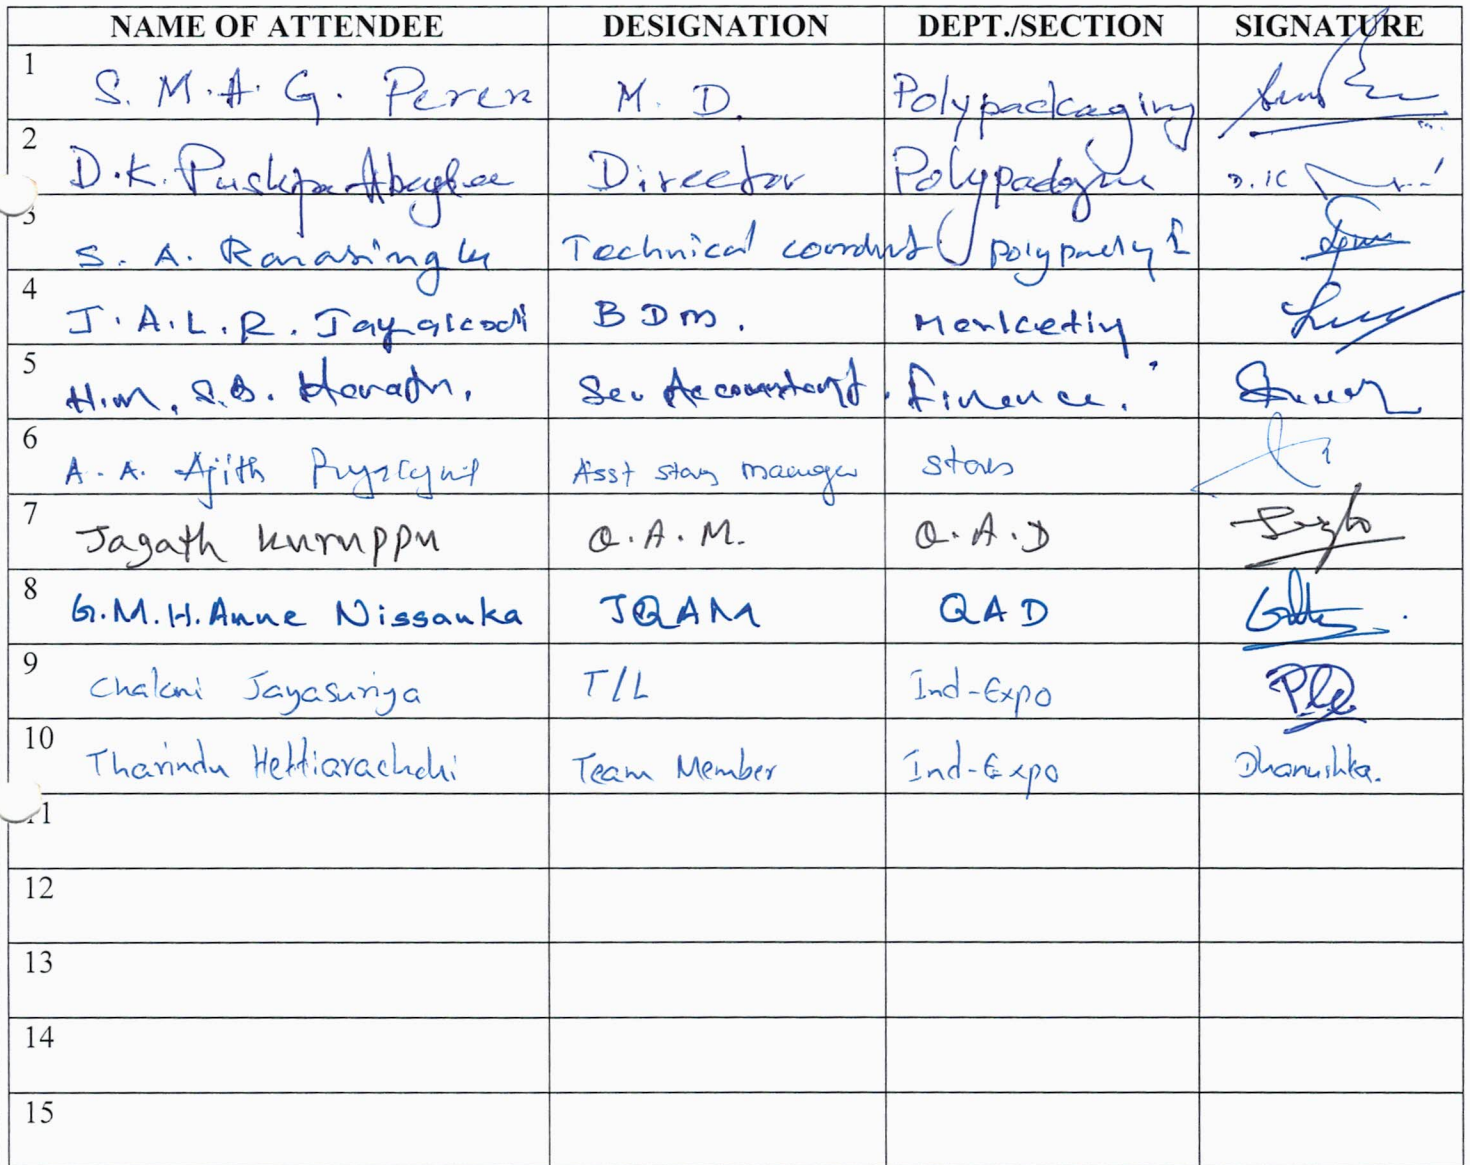 NAME OF ATTENDEE DESIGNATION DEPT./SECTION SIGNATURE
1 S. M. A. G. Perera M. D. Polypackaging
2 D. K. Pushpa Director
3 S. A. Ranasinghe Technical
4 J. A. L. R. Jayakodi BDM. Marketing
5 H.M. S.B. Herath. Accountant. Finance.
6 A. A. Ajith Asst manager
7 Jagath Kuruppu Q. A. M. Q. A. D
8 G.M.H. Anne Nissanka JQAM QAD
9 Chalani Jayasuriya T/L Ind-Expo
10 Tharindu Hettiarachchi Team Member Ind-Expo Dhanushka.
11
12
13
14
15